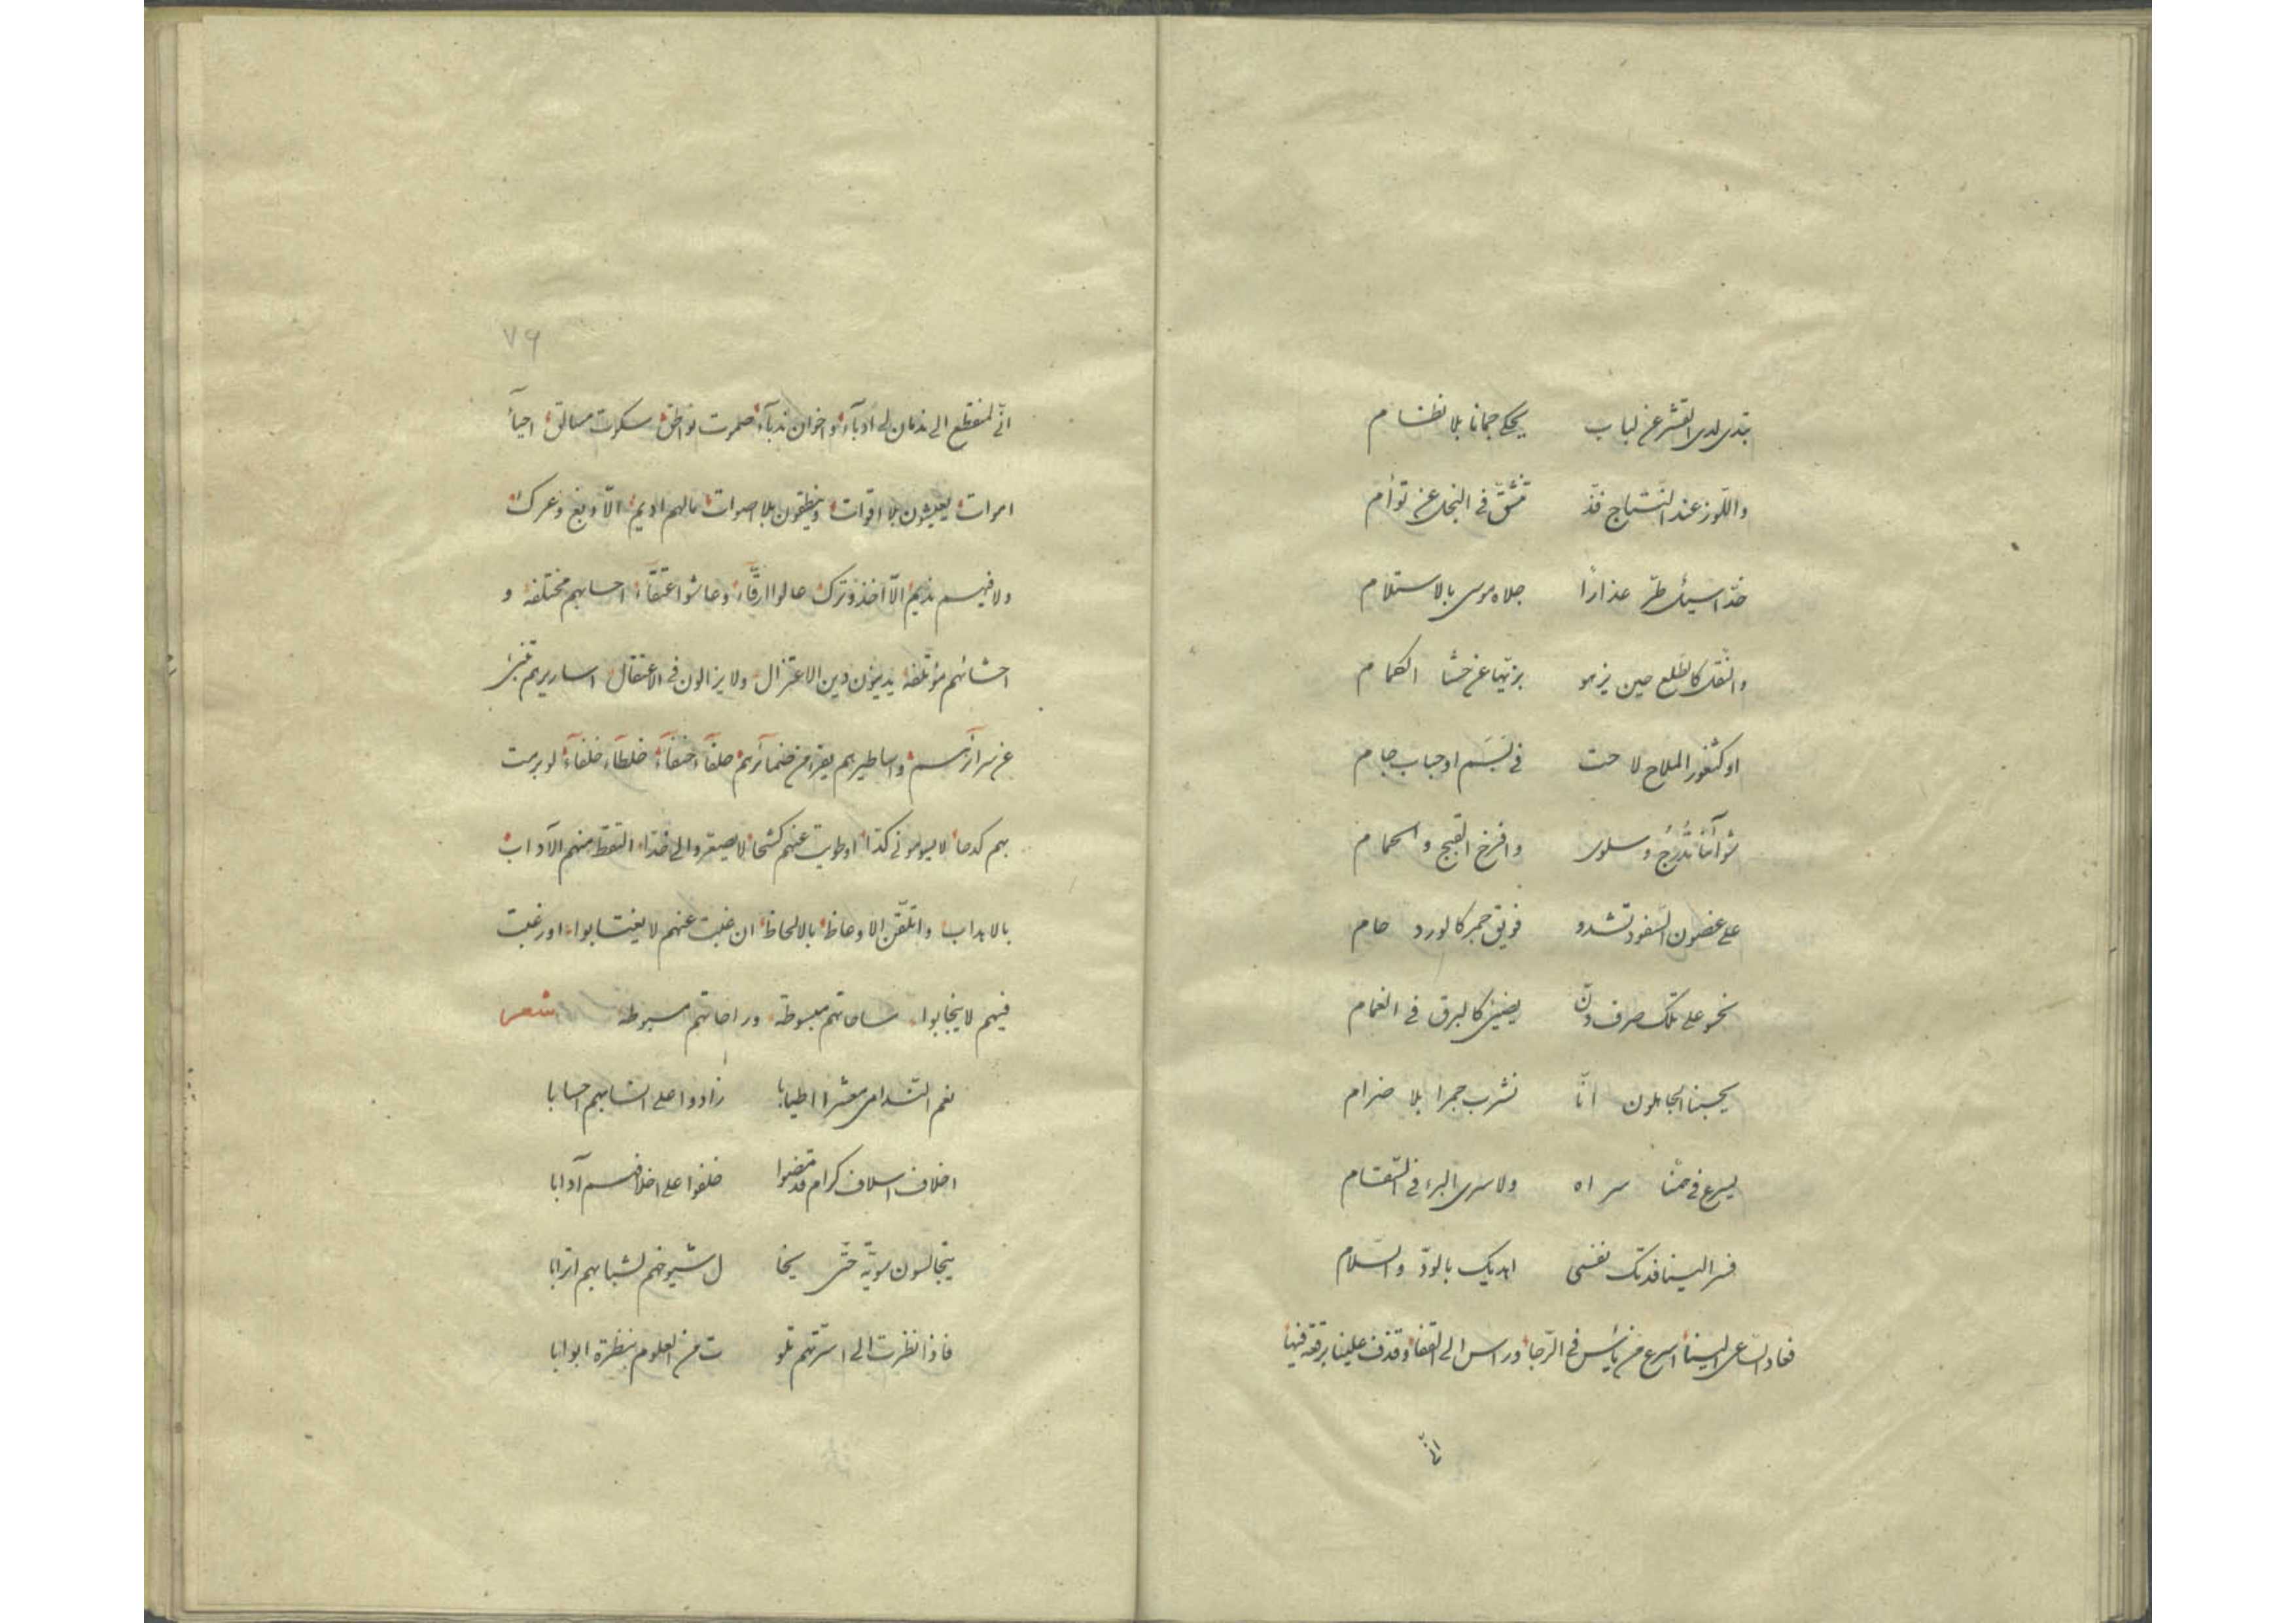 تبدى لدى القشر عن لباب يحكى جمانا بلا نظام
واللوز عند النتاج فذ تنشق فى النجل عن توأم
خدا سيل طر عذارا جلاه موسى بالاستلام
والنقل كالطلع حين يزهو بزتها عن حشا الكمام
او كثغور الملاح لاحت فى تبسم او حباب جام
شوآئنا تدرج وسلوى وافرخ القبج والحمام
على غصون السفود تشدو فويق جمر كالورد حام
نحو على تلك صرف دن يضئ كالبرق فى الغمام
يحسبنا الجاهلون انا نشرب جمرا بلا ضرام
يسرع فى همنا سراه ولا سرى البرء فى السقام
فسر الينا فدتك نفسى اهديك بالود والسلام
فعاد الساعى الينا اسرع من يأس فى الرجا وراس الى القفا وقذف علينا برقعة فيها
انى
٧٩
انى لمنقطع الى ندمان لى ادبآء واخوان ندبآء صلمرت نواطق سكوت مسالق احيآء
اموات يعيشون بلا اقوات وينطقون بلا اصوات مالهم اديم الا دبغ وعرك
ولا فيهم نديم الا اخذ وترك صالوا ارقآء وعاشوا عتقآء احسابهم مختلفة و
احشائهم مؤتلفة يدينون دين الاعتزال ولا يزالون فى الاعتقال اساريرهم تنبئ
عن سرآئرهم واساطيرهم يفرا من ضمآئرهم حلفآء حنفآء خلطآء خلفآء لو برمت
بهم كدحا لا يسومونى كدا او طويت عنهم كشحا لا يصعروا الى خدا التقط منهم الآداب
بالاهداب واتلقن الاوعاظ بالالحاظ ان غبت عنهم لا يغتابوا او رغبت
فيهم لا ينجابوا ساحاتهم مبسوطة وراحاتهم مسبوطة شعر
نعم الندامى معشرا اطيابا زادوا على انسابهم احسابا
اخلاف اسلاف كرام قد مضوا خلفوا على اخلافهم آدابا
يتجالسون سوية حتى يخا ل شيوخهم لشبابهم اترابا
فاذا نظرت الى اسرتهم تلو ت من العلوم بنظرة ابوابا